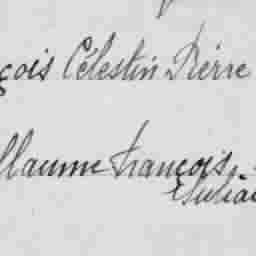 çois Célestin Pierre
llaume françois
Julia